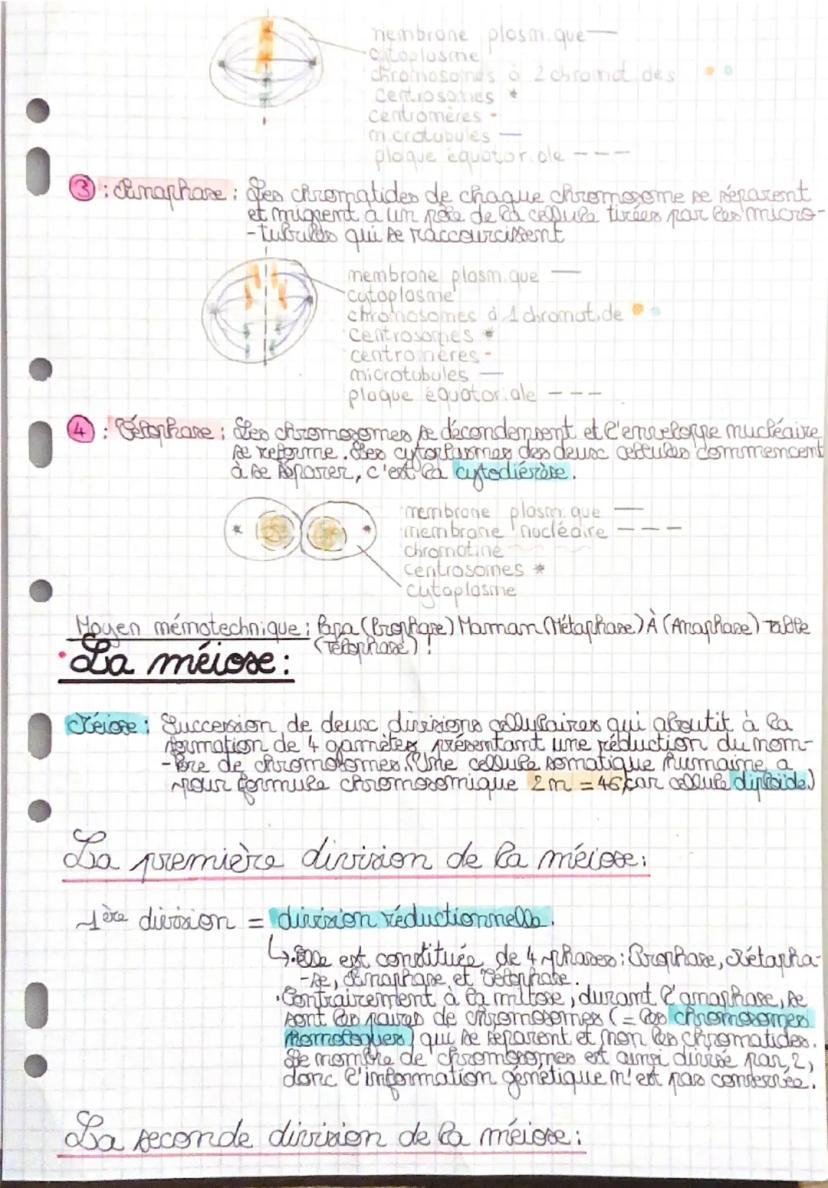 membrane plasmique —
cytoplasme
chromosomes à 2 chromatides
centrosomes *
centromères -
microtubules —
plaque équatoriale - - -
3 : Anaphase : Les chromatides de chaque chromosome se séparent
et migrent à un pôle de la cellule tirées par les micro-
-tubules qui se raccourcissent
membrane plasmique —
cytoplasme
chromosomes à 1 chromatide
centrosomes *
centromères -
microtubules —
plaque équatoriale - - -
4 : Télophase : Les chromosomes se décondensent et l'enveloppe nucléaire
se reforme. Les cytoplasmes des deux cellules commencent
à se séparer, c'est la cytodiérèse.
membrane plasmique —
membrane nucléaire - - -
chromatine
centrosomes *
cytoplasme
Moyen mémotechnique : Papa (Prophase) Maman (Métaphase) À (Anaphase) Table
(Télophase) !
La méiose :
Méiose : Succession de deux divisions cellulaires qui aboutit à la
formation de 4 gamètes, présentant une réduction du nom-
-bre de chromosomes (Une cellule somatique humaine a
pour formule chromosomique 2n = 46 car cellule diploïde.)
La première division de la méiose :
1ère division = division réductionnelle.
↳ . Elle est constituée de 4 phases : Prophase, Métapha-
-se, Anaphase et Télophase.
. Contrairement à la mitose, durant l'anaphase, se
sont les paires de chromosomes (= les chromosomes
homologues) qui se séparent et non les chromatides.
Le nombre de chromosomes est ainsi divisé par 2,
donc l'information génétique n'est pas conservée.
La seconde division de la méiose :